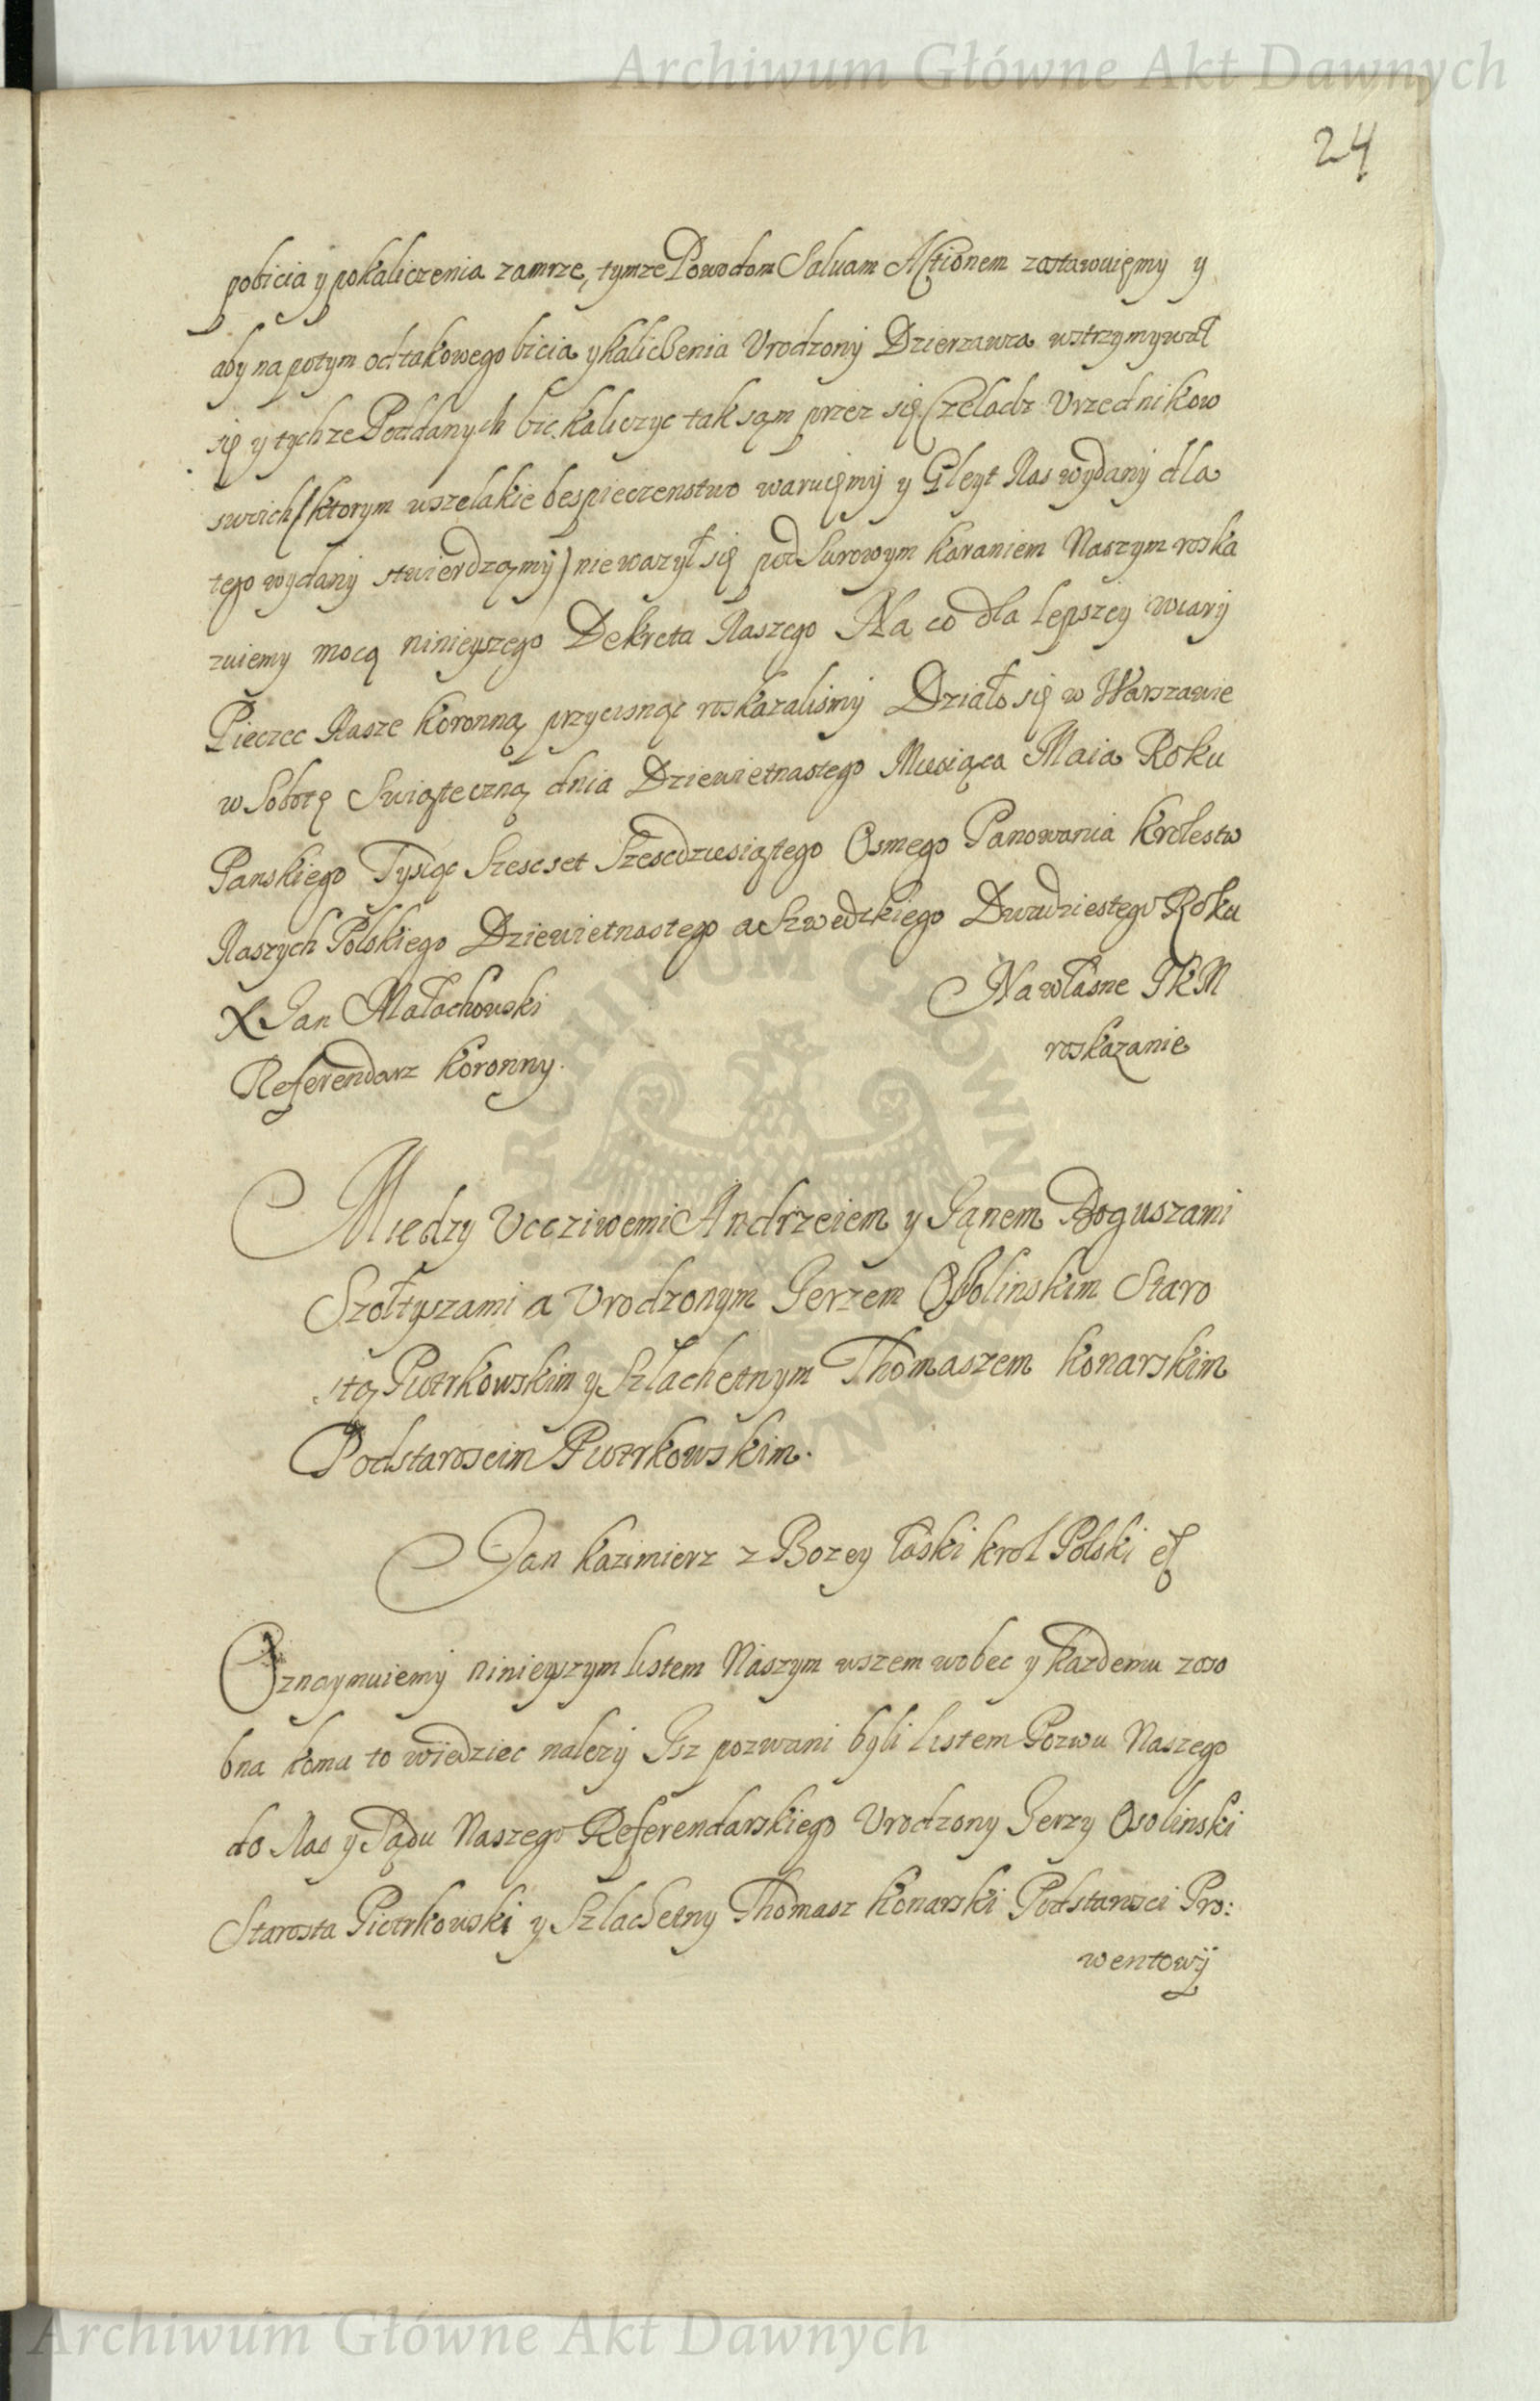 Archiwum Główne Akt Dawnych
24
pobicia y pokaliczenia zamrze, tymze Powodom Saluam Actionem zostawuięmy y
aby na potym od takowego bicia y kaliczenia Vrodzony Dzierzawca wstrzymywał
się y tychze Poddanych bic, kaliczyc tak sąm przez się Czeladz Vrzednikow
swoich /ktorym wszelakie bespieczenstwo waruięmy y Gleyt Nas wydany dla
tego wydany stwierdzamy) nie wazył się pod Surowym karaniem Naszym roska
zuiemy mocą ninieyszego Dekreta Naszego Na co dla lepszey wiary
Pieczec Nasze koronną przycisnąc roskazalismy Działo się w Warszawie
w Sobotę Swiąteczną dnia Dziewietnastego Miesiąca Maia Roku
Panskiego Tysiąc Szescset Szescdziesiątego Osmego Panowania krolestw
Naszych Polskiego Dziewietnastego a Szwedzkiego Dwudziestego Roku
X Jan Małachowski
Na własne JKM
Referendarz koronny.
roskazanie
Między Vccziwemi Andrzeiem y Janem Boguszami
Szołtyszami a Vrodzonym Jerzem Ossolinskim Staro
stą Piotrkowskim y Szlachetnym Thomaszem konarskim
Podstaroscim Piotrkowskim.
Jan kazimierz z Bozey łaski krol Polski etc
Oznaymuiemy ninieyszym listem Naszym wszem wobec y kazdemu zoso
bna komu to wiedziec nalezy Isz pozwani byli listem Pozwu Naszego
do Nas y Sądu Naszego Referendarskiego Vrodzony Jerzy Osolinski
Starosta Piotrkowski y Szlachetny Thomasz konarski Podstarosci Pro:
wentowy
ARCHIWUM GŁÓWNE AKT DAWNYCH
Archiwum Główne Akt Dawnych